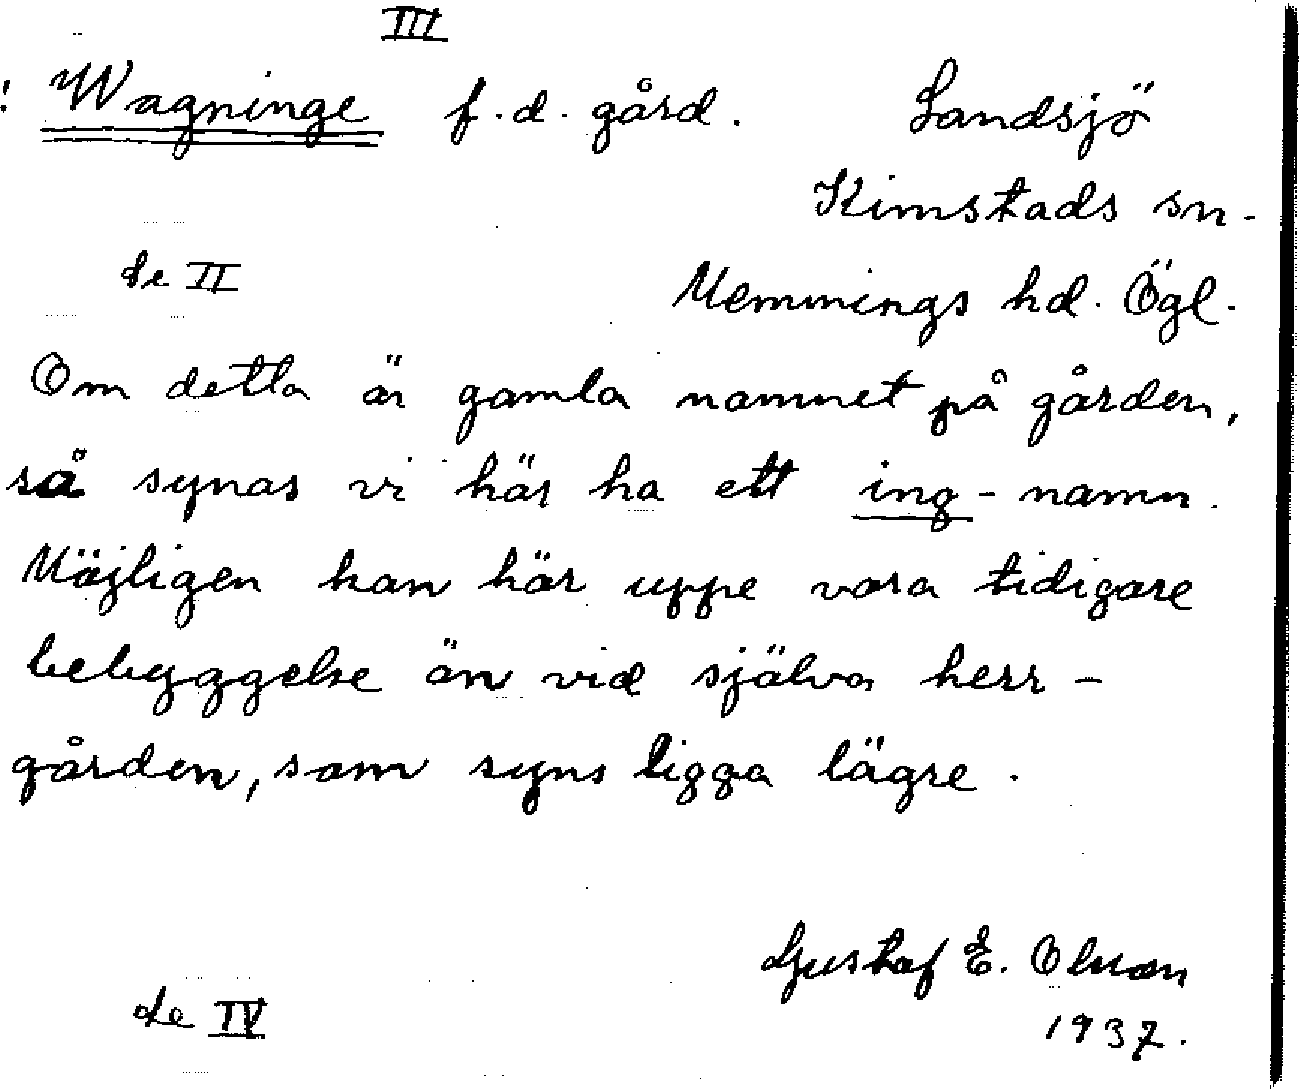 III
! Wagninge f.d. gård. Landsjö
Kimstads sn.
se II
Memmings hd. Ögl.
Om detta är gamla namnet på gården,
så synas vi här ha ett ing-namn.
Möjligen kan här uppe vara tidigare
bebyggelse än vid själva herr-
gården, som syns ligga lägre.
Gustaf E. Olsson
1937.
se IV